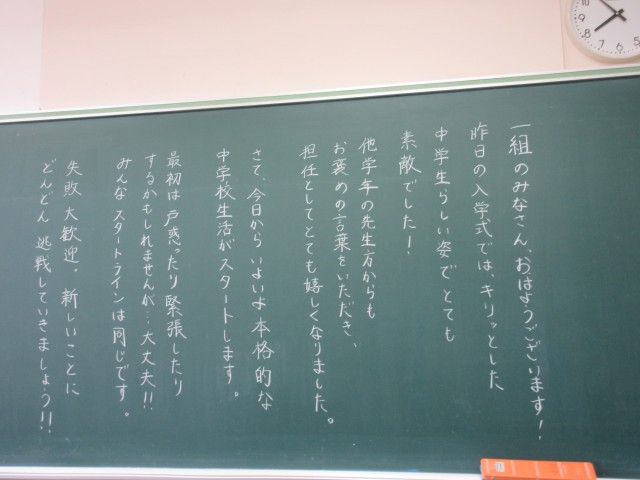 一組のみなさん、おはようございます！
昨日の入学式では、キリッとした
中学生らしい姿でとても
素敵でした！
他学年の先生方からも
お褒めの言葉をいただき、
担任としてとても嬉しくなりました。
さて、今日からいよいよ本格的な
中学校生活がスタートします。
最初は戸惑ったり緊張したり
するかもしれませんが…大丈夫!!
みんなスタートラインは同じです。
失敗大歓迎。新しいことに
どんどん挑戦していきましょう!!
10
9
8
7
6
5